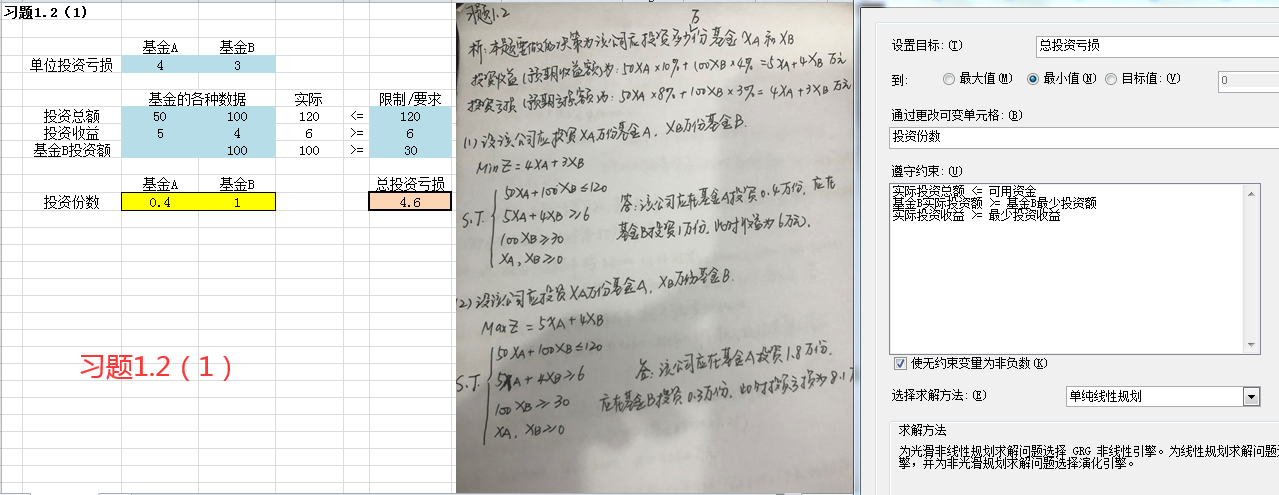 习题1.2（1）
基金A 基金B
单位投资亏损 4 3
基金的各种数据 实际 限制/要求
投资总额 50 100 120 <= 120
投资收益 5 4 6 >= 6
基金B投资额 100 100 >= 30
基金A 基金B 总投资亏损
投资份数 0.4 1 4.6
习题1.2（1）
习题1.2
万
析:本题要做的决策为该公司应投资多少份基金XA和XB
投资收益(预期收益额)为: 50XA×10%+100XB×4%=5XA+4XB 万元
投资亏损(预期亏损额)为: 50XA×8%+100XB×3%=4XA+3XB 万元
(1)设该公司应投资XA万份基金A,XB万份基金B.
Min Z=4XA+3XB
S.T.
50XA+100XB≤120
5XA+4XB≥6
100XB≥30
XA,XB≥0
答:该公司应在基金A投资0.4万份,应在
基金B投资1万份,此时收益为6万元.
(2)设该公司应投资XA万份基金A,XB万份基金B.
Max Z=5XA+4XB
S.T.
50XA+100XB≤120
5XA+4XB≥6
100XB≥30
XA,XB≥0
答:该公司应在基金A投资1.8万份,
应在基金B投资0.3万份,此时投资亏损为8.1万
设置目标:(T) 总投资亏损
到: 最大值(M) 最小值(N) 目标值:(V) 0
通过更改可变单元格:(B)
投资份数
遵守约束:(U)
实际投资总额 <= 可用资金
基金B实际投资额 >= 基金B最少投资额
实际投资收益 >= 最少投资收益
使无约束变量为非负数(K)
选择求解方法:(E) 单纯线性规划
求解方法
为光滑非线性规划求解问题选择 GRG 非线性引擎。为线性规划求解问题
擎，并为非光滑规划求解问题选择演化引擎。